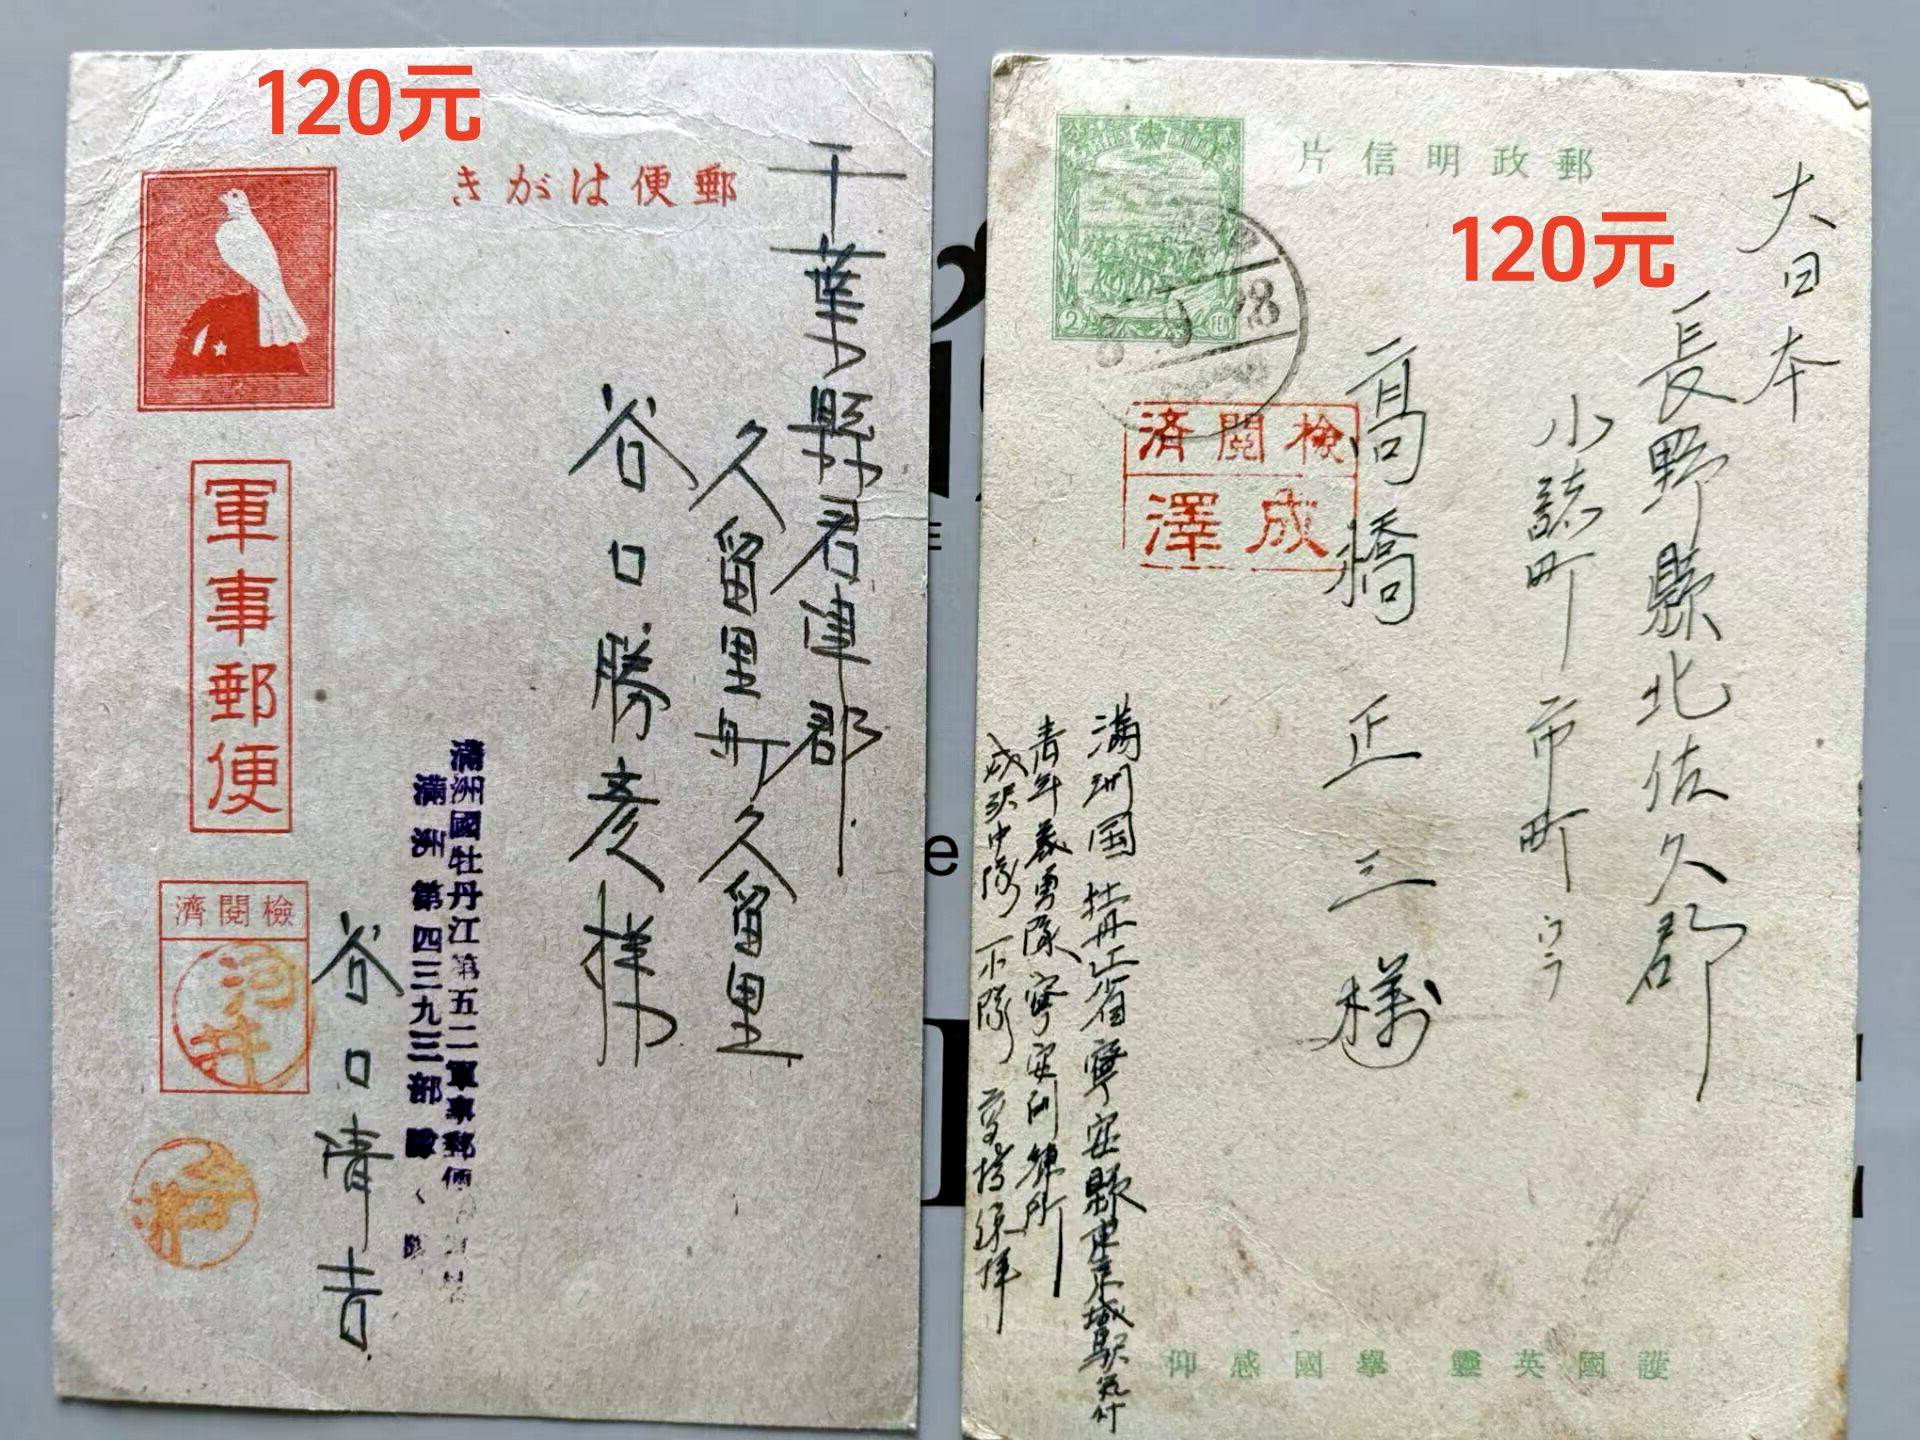 120元
郵便はがき
軍事郵便
検閲濟
河井
千葉縣君津郡
久留里町久留里
谷口勝彦様
滿洲國牡丹江第五二軍事郵便
滿洲第四三九三部隊
谷口清吉
120元
郵政明信片
2
FEN
8 9 28
検閲済
成澤
大日本
長野縣北佐久郡
小諸町市町ウラ
高橋正三様
満洲国牡丹江省寧安縣東京城駅気付
青年義勇隊寧安訓練所
成沢中隊
護國英靈 擧國感仰